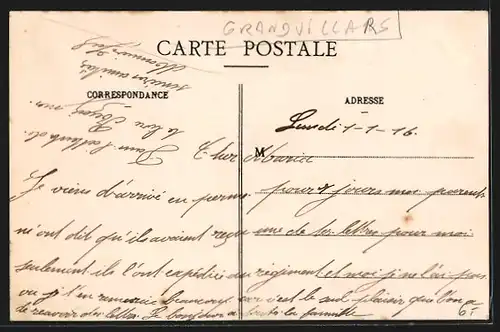 GRANDVILLARS
CARTE POSTALE
CORRESPONDANCE
ADRESSE
Lundi 1-1-16
M
Cher Maria
Je viens d'arrivé en perme pour 8 jours mes parents
m'ont dit qu'ils avaient reçu une de tes lettre pour moi
seulement ils l'ont expédiée au régiment et moi je ne l'ai pas
vu je t'en remercie beaucoup car c'est le seul plaisir que l'on a
de recevoir des lettre. Le bonjour a toute la famille